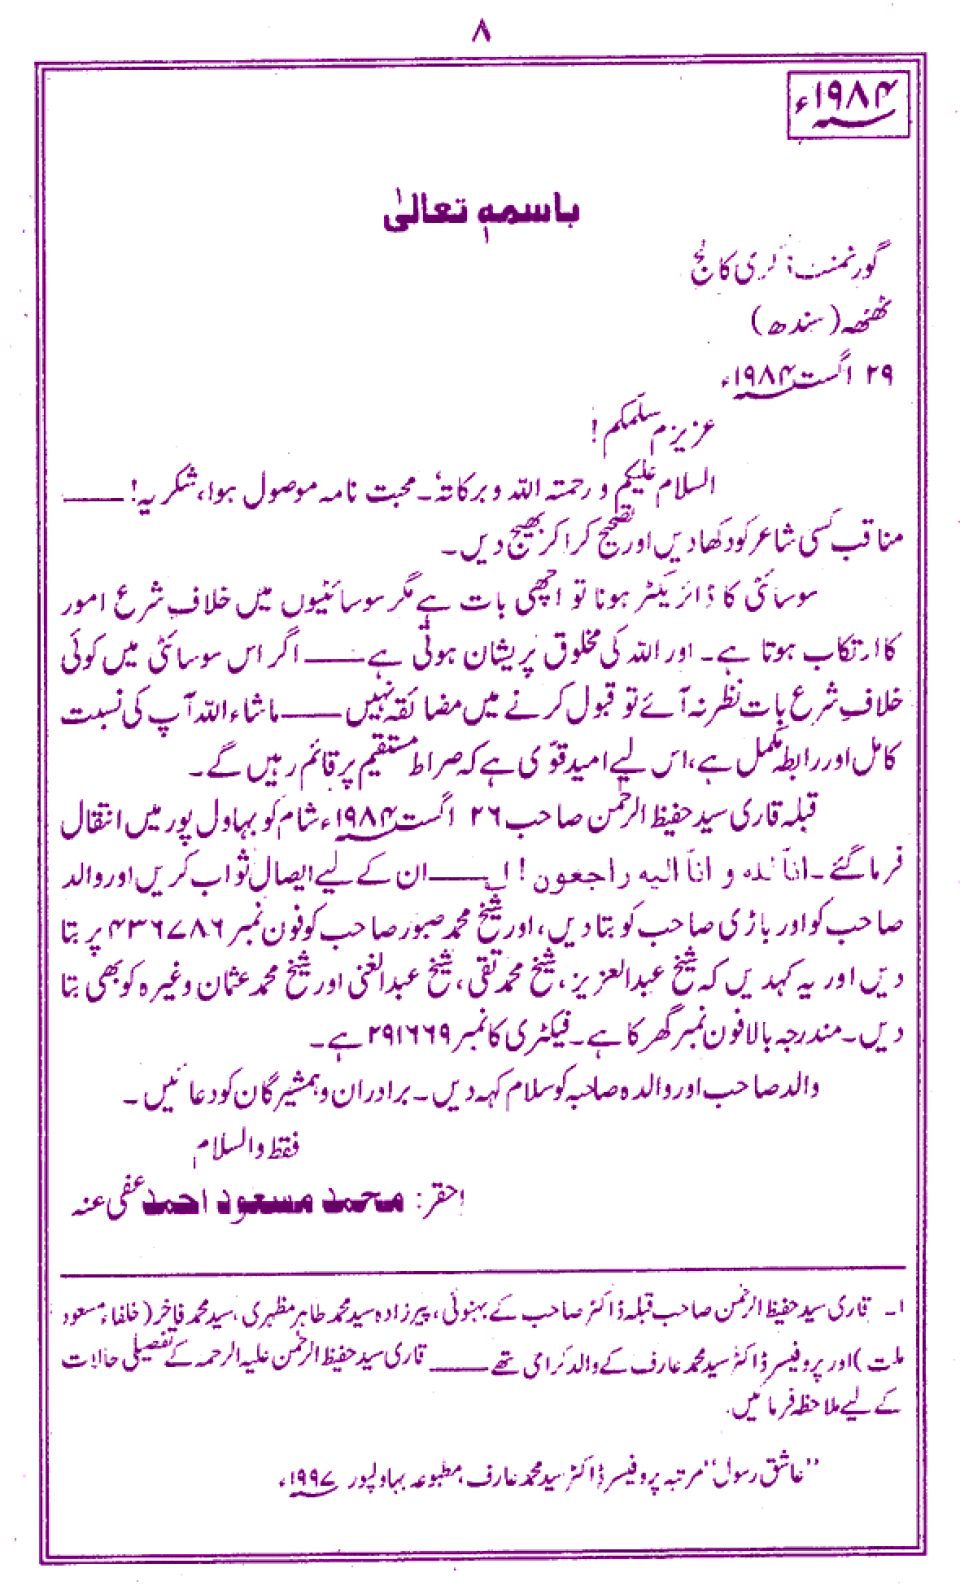 ۸
۱۹۸۴ء
باسمہٖ تعالیٰ
گورنمنٹ ڈگری کالج
ٹھٹھہ (سندھ)
۲۹ اگست ۱۹۸۴ء
عزیزم سلمکم!
السلام علیکم و رحمتہ اللہ و برکاتہٗ۔ محبت نامہ موصول ہوا، شکریہ! ——
مناقب کسی شاعر کو دکھا دیں اور تصحیح کرا کر بھیج دیں۔
سوسائٹی کا ڈائریکٹر ہونا تو اچھی بات ہے مگر سوسائٹیوں میں خلافِ شرع امور
کا ارتکاب ہوتا ہے۔ اور اللہ کی مخلوق پریشان ہوتی ہے —— اگر اس سوسائٹی میں کوئی
خلافِ شرع بات نظر نہ آئے تو قبول کرنے میں مضائقہ نہیں —— ماشاء اللہ آپ کی نسبت
کامل اور رابطہ مکمل ہے، اس لیے امید قوّی ہے کہ صراط مستقیم پر قائم رہیں گے۔
قبلہ قاری سید حفیظ الرحمٰن صاحب ۲۶ اگست ۱۹۸۴ء شام کو بہاول پور میں انتقال
فرما گئے۔ انا للہ و انا الیہ راجعون! ۱؎ —— ان کے لیے ایصال ثواب کریں اور والد
صاحب کو اور باڑی صاحب کو بتا دیں، اور شیخ محمد صبور صاحب کو فون نمبر ۴۳۶۷۸۶ پر بتا
دیں اور یہ کہدیں کہ شیخ عبدالعزیز، شیخ محمد تقی، شیخ عبدالغنی اور شیخ محمد عثمان وغیرہ کو بھی بتا
دیں۔ مندرجہ بالا فون نمبر گھر کا ہے۔ فیکٹری کا نمبر ۲۹۱۶۶۹ ہے۔
والد صاحب اور والدہ صاحبہ کو سلام کہہ دیں۔ برادران و ہمشیرگان کو دعائیں۔
فقط والسلام
احقر: محمد مسعود احمد عفی عنہ
۱۔ قاری سید حفیظ الرحمٰن صاحب قبلہ ڈاکٹر صاحب کے بہنوئی، پیرزادہ سید محمد طاہر مظہری، سید محمد فاخر (خلفاء مسعود
ملت) اور پروفیسر ڈاکٹر سید محمد عارف کے والد گرامی تھے —— قاری سید حفیظ الرحمٰن علیہ الرحمہ کے تفصیلی حالات
کے لیے ملاحظہ فرمائیں۔
"عاشق رسول" مرتبہ پروفیسر ڈاکٹر سید محمد عارف، مطبوعہ بہاولپور ۱۹۹۷ء